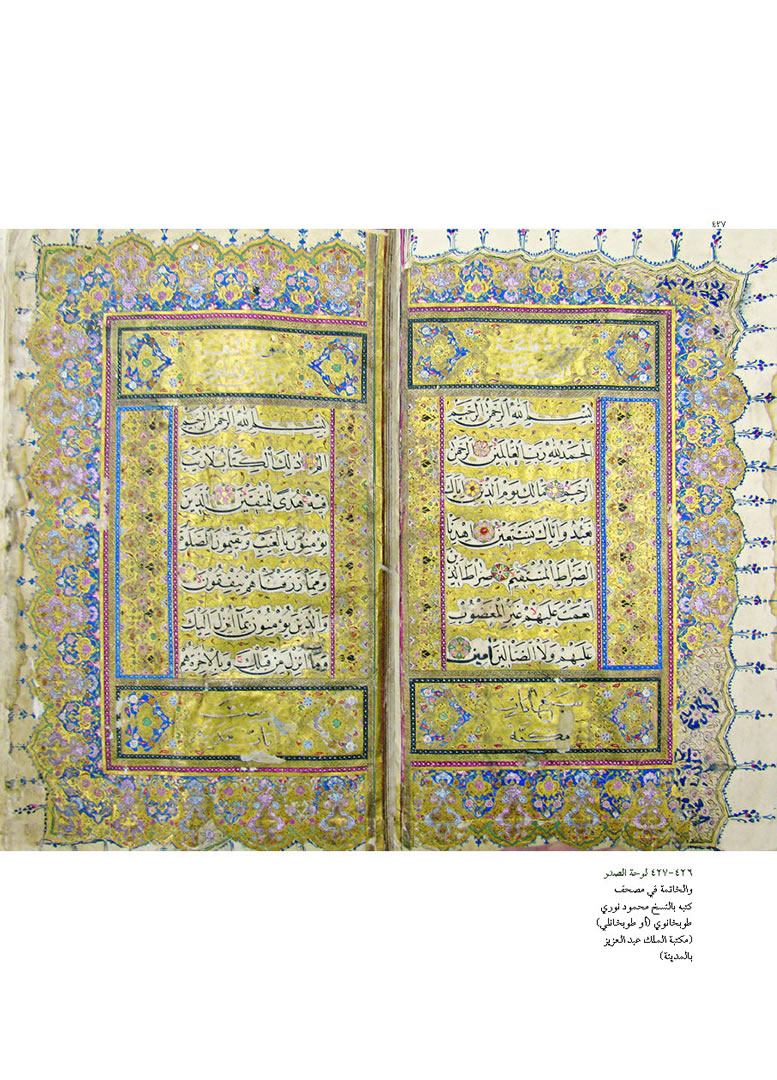 ٤٢٧
بسم الله الرحمن الرحيم
الحمد لله رب العالمين الرحمن
الرحيم مالك يوم الدين اياك
نعبد واياك نستعين اهدنا
الصراط المستقيم صراط الذين
انعمت عليهم غير المغضوب
عليهم ولا الضالين امين
سبع ايات
مكية
بسم الله الرحمن الرحيم
الم ذلك الكتاب لا ريب
فيه هدى للمتقين الذين
يؤمنون بالغيب ويقيمون الصلوة
ومما رزقناهم ينفقون
والذين يؤمنون بما انزل اليك
وما انزل من قبلك وبالاخرة هم
٤٢٦-٤٢٧ لوحة الصدر
والخاتمة في مصحف
كتبه بالنسخ محمود نوري
طوبخانوي (أو طوبخانلي)
(مكتبة الملك عبد العزيز
بالمدينة)